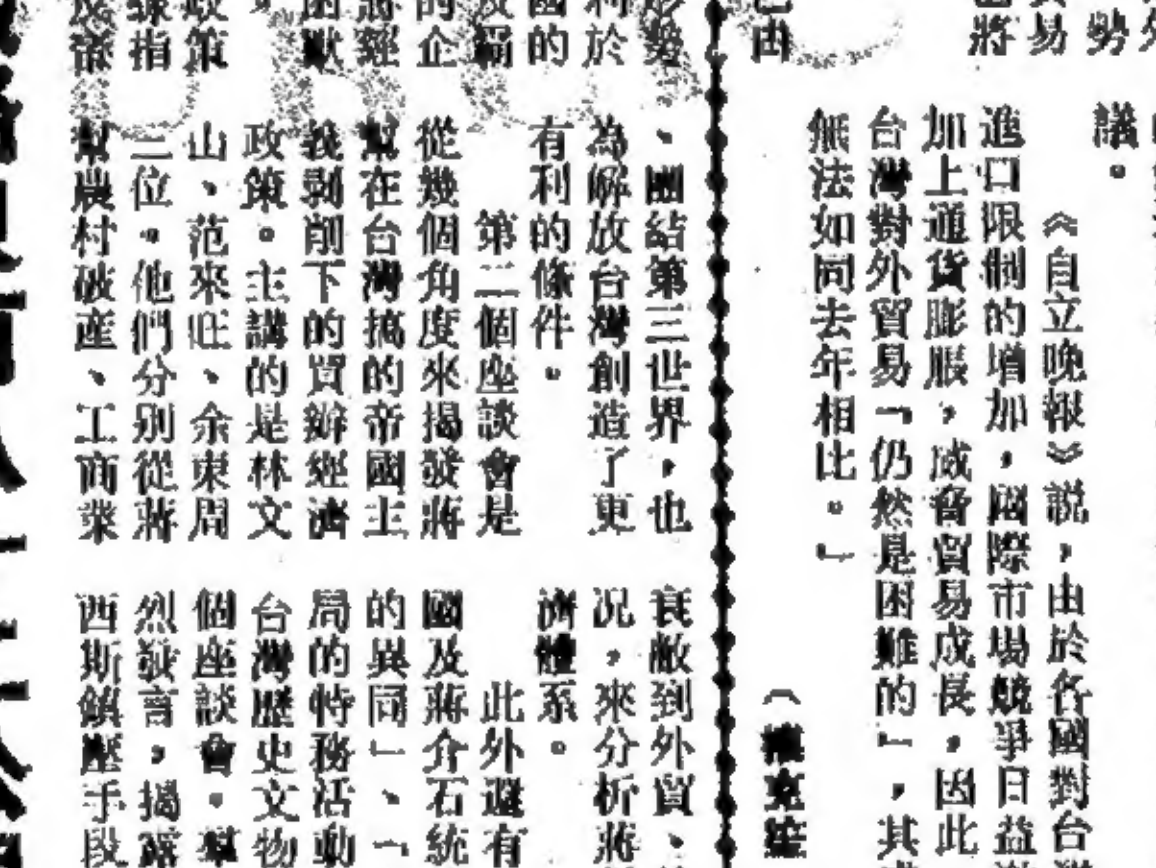 勢
易
將
議。
《自立晚報》説，由於各國對台
進口限制的增加，國際市場競爭日益
加上通貨膨脹，威脅貿易成長，因此
台灣對外貿易「仍然是困難的」，其
無法如同去年相比。」
由
、團結第三世界，也
為解放台灣創造了更
有利的條件。
第二個座談會是
從幾個角度來揭發蔣
幫在台灣搞的帝國主
義剝削下的買辦經濟
政策。主講的是林文
山、范來旺、余東周
三位。他們分別從蔣
幫農村破產、工商業
衰敝到外貿、
況，來分析蔣
濟體系。
此外還有
國及蔣介石統
的異同」、「
局的特務活動
台灣歷史文物
個座談會。
烈發言，揭露
西斯鎮壓手段